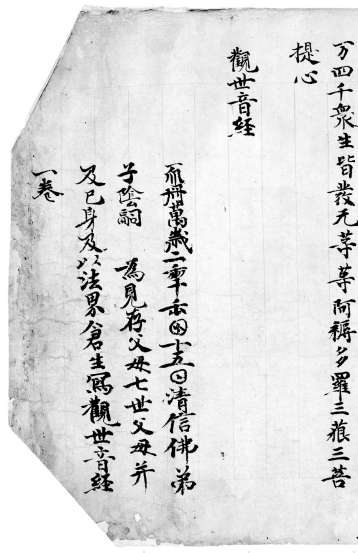 万四千衆生皆發无等等阿耨多羅三藐三菩
提心
觀世音經
𠀑冊萬歲二𠡦𠙺囝十五𡆠清信佛弟
子陰嗣　為見存父母七世父母并
及己身及以法界倉生寫觀世音經
一卷